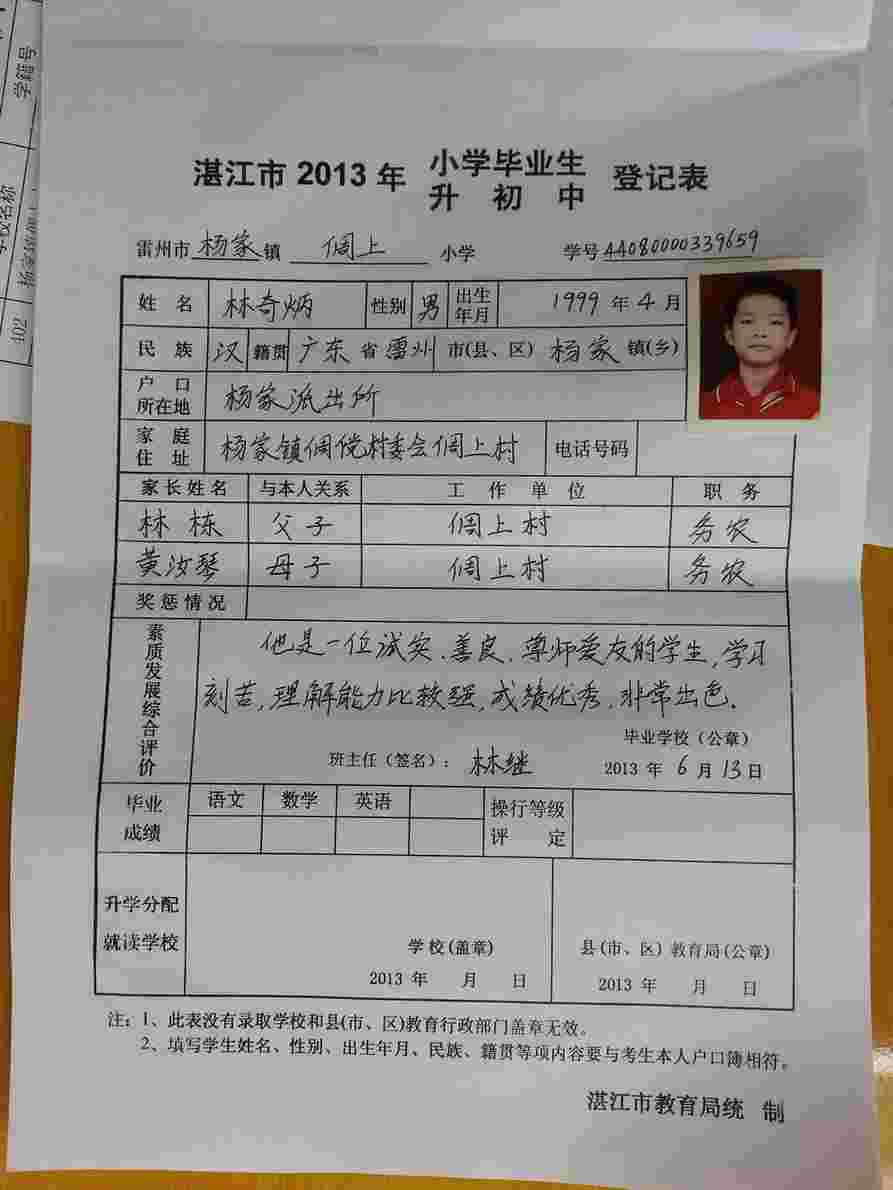 学籍号
湛江市 2013 年 小学毕业生 升初中 登记表
雷州市 杨家 镇 倜上 小学 学号 AA080000339659
姓名 林奇炳 性别 男 出生年月 1999 年 4 月
民族 汉 籍贯 广东 省 雷州 市(县、区) 杨家 镇(乡)
户口所在地 杨家派出所
家庭住址 杨家镇倜傥村委会倜上村 电话号码
家长姓名 与本人关系 工作单位 职务
林栋 父子 倜上村 务农
黄汝琴 母子 倜上村 务农
奖惩情况
素质发展综合评价
他是一位诚实、善良、尊师爱友的学生,学习
刻苦,理解能力比较强,成绩优秀,非常出色.
毕业学校(公章)
班主任(签名): 林继 2013 年 6 月 13 日
毕业成绩 语文 数学 英语 操行等级评定
升学分配
就读学校
学校(盖章) 县(市、区)教育局(公章)
2013 年 月 日 2013 年 月 日
注:1、此表没有录取学校和县(市、区)教育行政部门盖章无效。
2、填写学生姓名、性别、出生年月、民族、籍贯等项内容要与考生本人户口簿相符。
湛江市教育局统 制